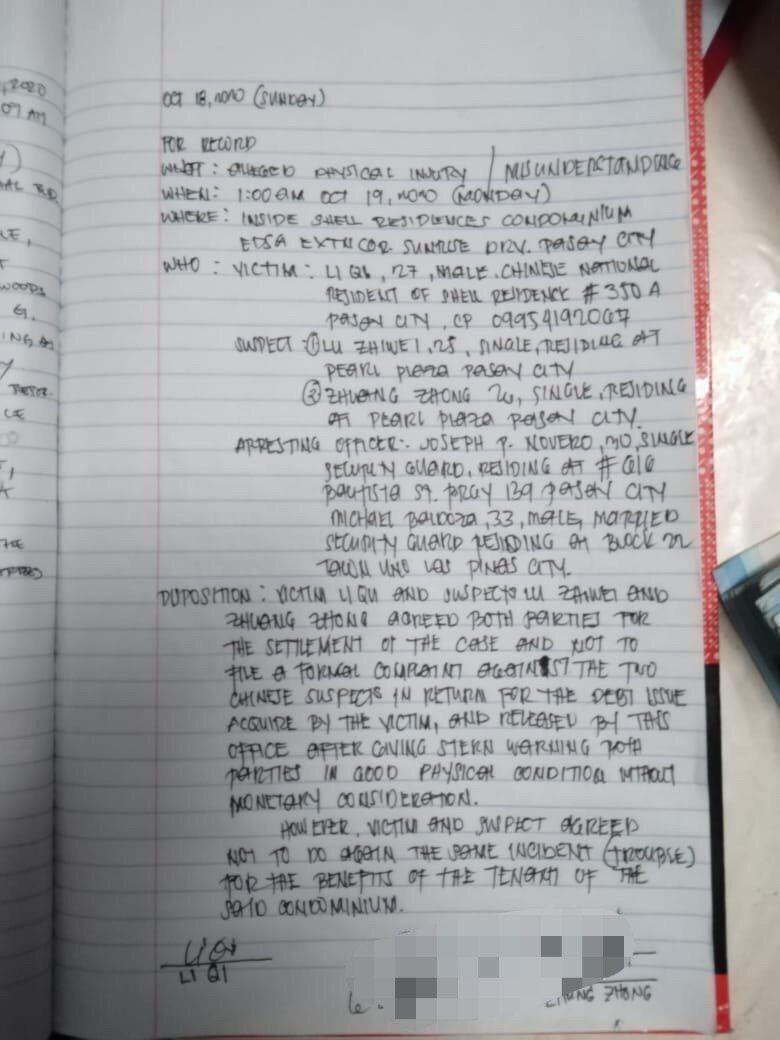 , 2020
09 AM
OCT 18, 2020 (SUNDAY)
FOR RECORD
WHAT : ALLEGED PHYSICAL INJURY / MISUNDERSTANDING
WHEN : 1:00 AM OCT 19, 2020 (MONDAY)
WHERE : INSIDE SHELL RESIDENCES CONDOMINIUM
EDSA EXTN COR SUNRISE DRV. PASAY CITY
WHO : VICTIM : LI QI, 27, MALE, CHINESE NATIONAL
RESIDENT OF SHELL RESIDENCE # 350 A
PASAY CITY, CP 09954192067
SUSPECT : ① LU ZHIWEI, 25, SINGLE, RESIDING AT
PEARL PLAZA PASAY CITY
② ZHUANG ZHONG 26, SINGLE, RESIDING
AT PEARL PLAZA PASAY CITY.
ARRESTING OFFICER : JOSEPH P. NOVERO, 30, SINGLE
SECURITY GUARD, RESIDING AT # 616
BAUTISTA ST. BRGY 139 PASAY CITY
MICHAEL BALDOZA, 33, MALE, MARRIED
SECURITY GUARD RESIDING AT BLOCK 22
TALON UNO LAS PINAS CITY.
DISPOSITION : VICTIM LI QI AND SUSPECTS LU ZHIWEI AND
ZHUANG ZHONG AGREED BOTH PARTIES FOR
THE SETTLEMENT OF THE CASE AND NOT TO
FILE A FORMAL COMPLAINT AGAINST THE TWO
CHINESE SUSPECTS IN RETURN FOR THE DEBT ISSUE
ACQUIRE BY THE VICTIM, AND RELEASED BY THIS
OFFICE AFTER GIVING STERN WARNING BOTH
PARTIES IN GOOD PHYSICAL CONDITION WITHOUT
MONETARY CONSIDERATION.
HOWEVER, VICTIM AND SUSPECT AGREED
NOT TO DO AGAIN THE SAME INCIDENT (TROUBLE)
FOR THE BENEFITS OF THE TENANT OF THE
SAID CONDOMINIUM.
LI QI
LI QI
ZHONG